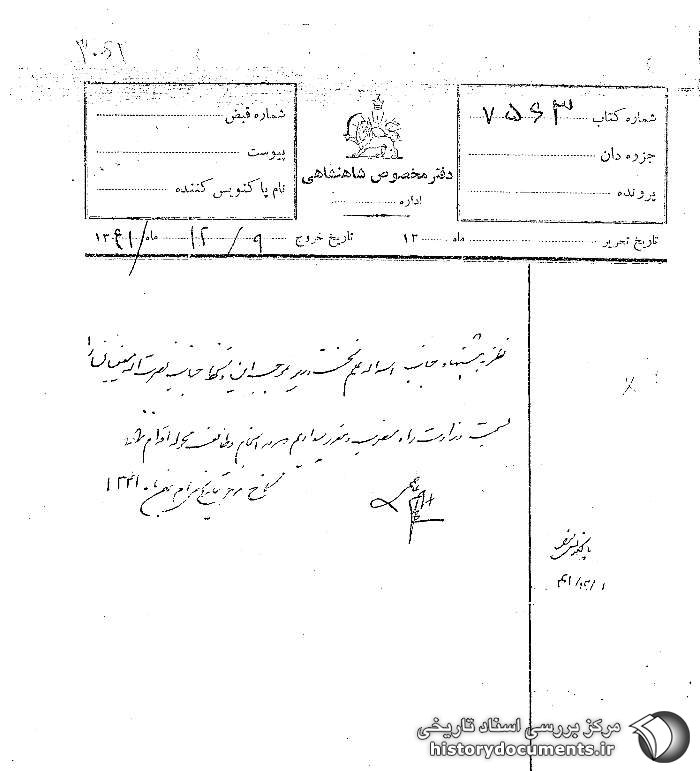 ۳۰۵۱
شماره کتاب ۷۵۶۳
جزوه دان
پرونده
دفتر مخصوص شاهنشاهی
اداره
شماره قبض
پیوست
نام پاکنویس کننده
تاریخ تحریر ماه ۱۳
تاریخ خروج ۹ / ۱۲ ماه ۱۳۴۱
نظر به پیشنهاد جناب اسداله علم نخست وزیر بموجب این دستخط جناب نصرت اله معینیان را
بسمت وزارت راه منصوب و مقرر میداریم در انجام وظائف محوله اقدام نماید
کاخ مرمر بتاریخ ماه ۱۳۴۱
پاکنویس شد
۴۱/۱۲/۱
مرکز بررسی اسناد تاریخی
historydocuments.ir